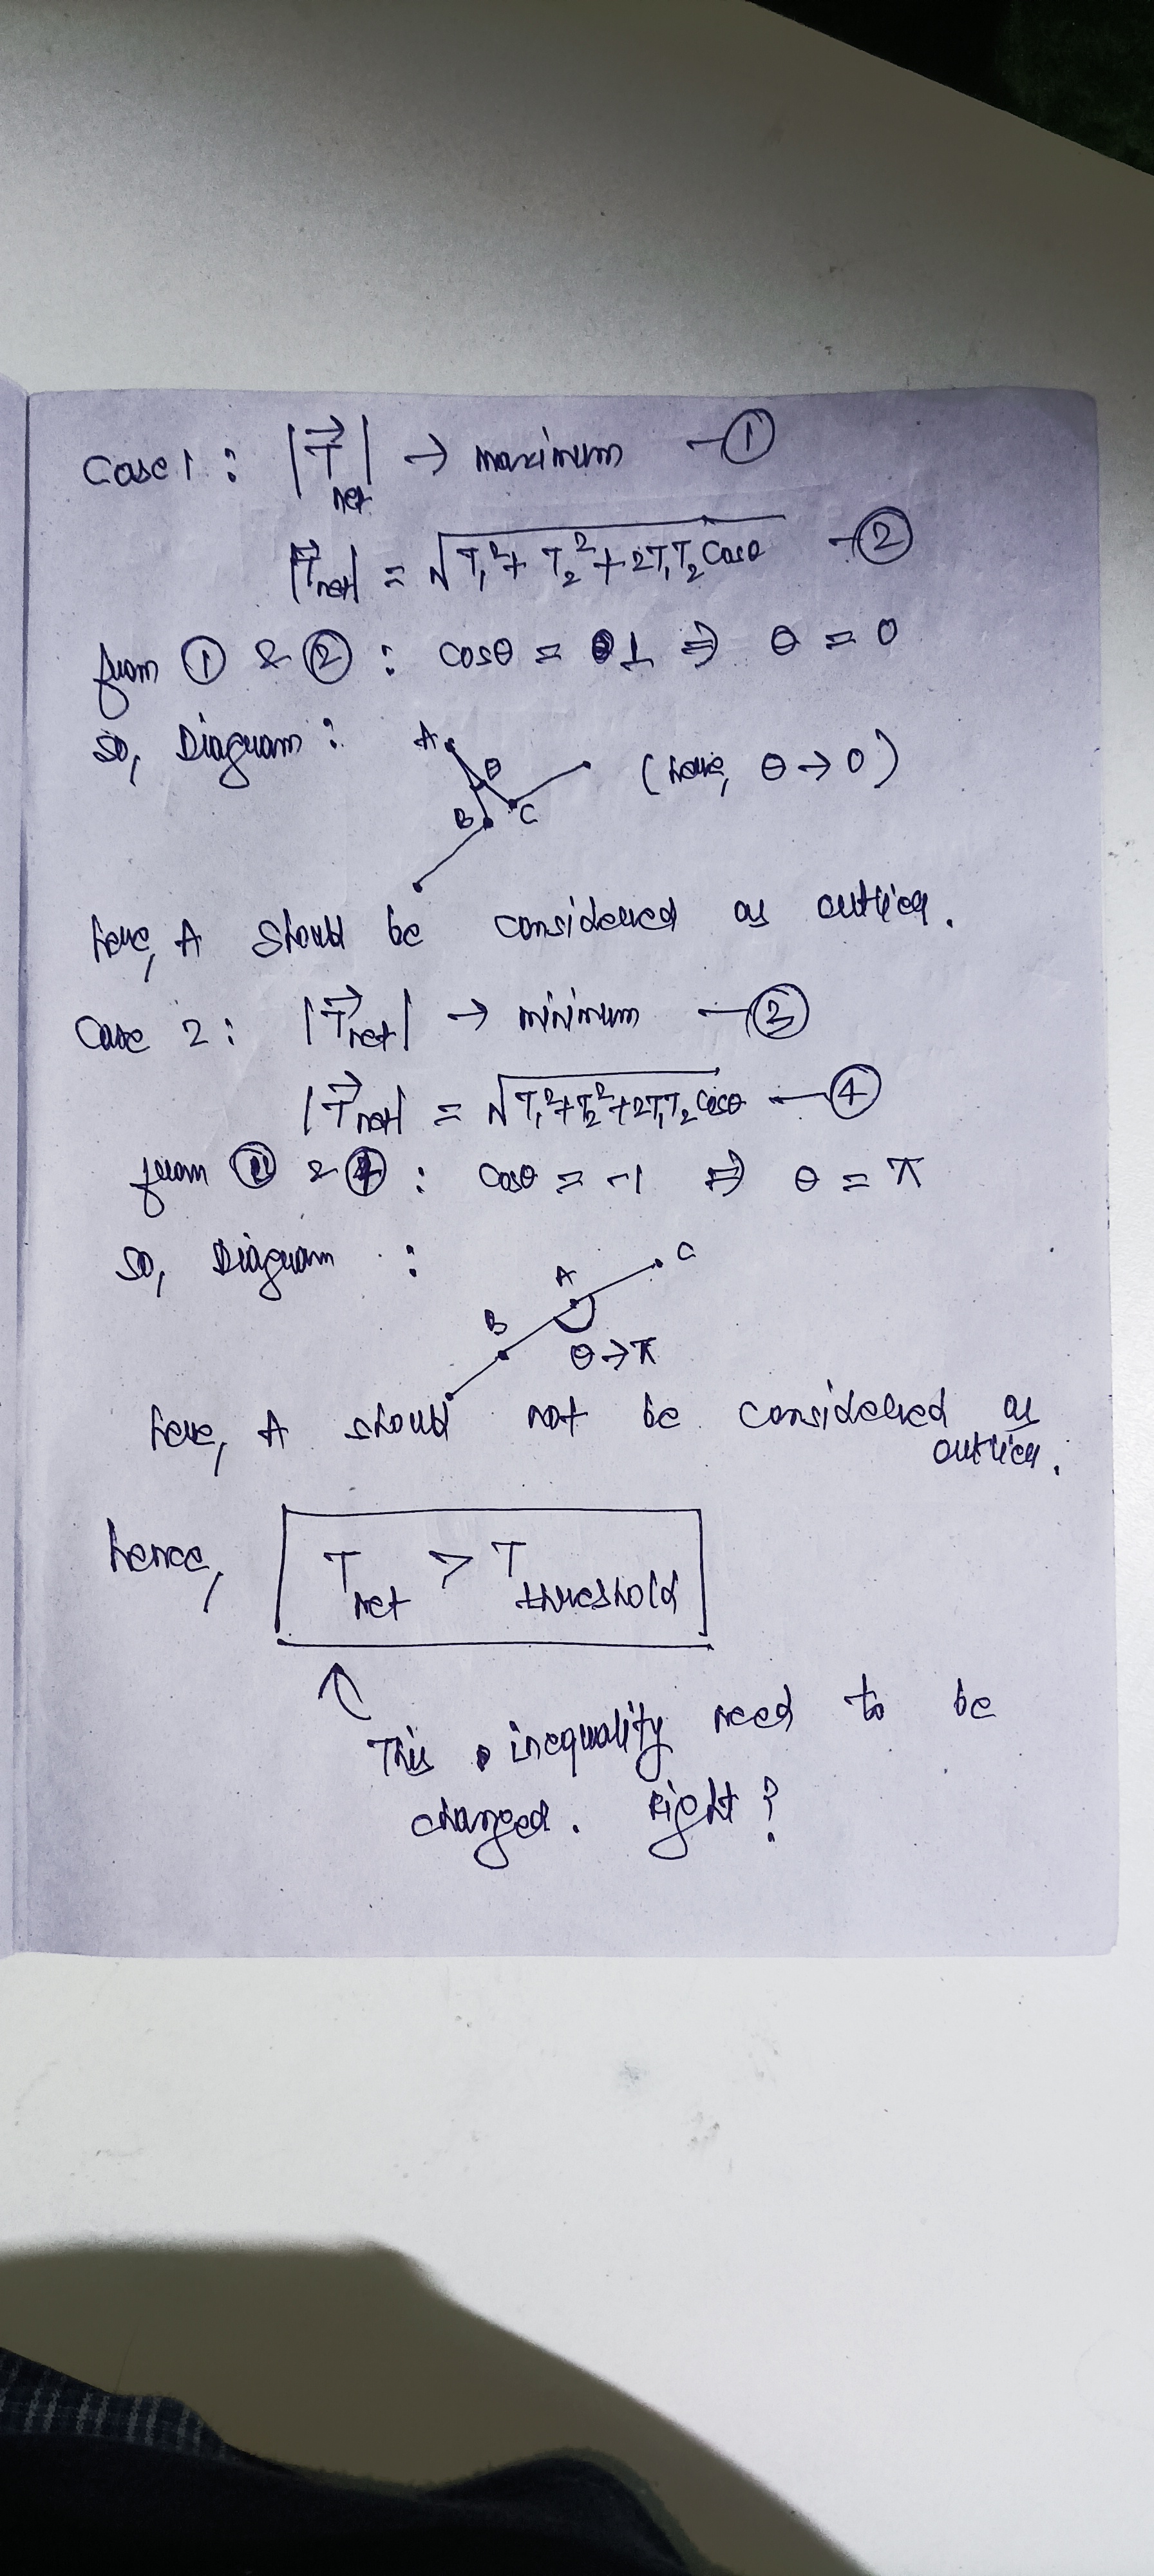 Case 1 : |T⃗net| → maximum — ①
|T⃗net| = √T₁² + T₂² + 2T₁T₂ Cosθ — ②
from ① & ② : cosθ = 1 ⇒ θ = 0
so, Diagram : A θ B C (here, θ → 0)
here, A should be considered as outlier.
Case 2 : |T⃗net| → minimum — ③
|T⃗net| = √T₁² + T₂² + 2T₁T₂ Cosθ — ④
from & ④ : cosθ = -1 ⇒ θ = π
So, Diagram :
B A C
θ → π
here, A should not be considered as
outlier.
hence, Tnet > Tthreshold
↑
This inequality need to be
changed. Right ?